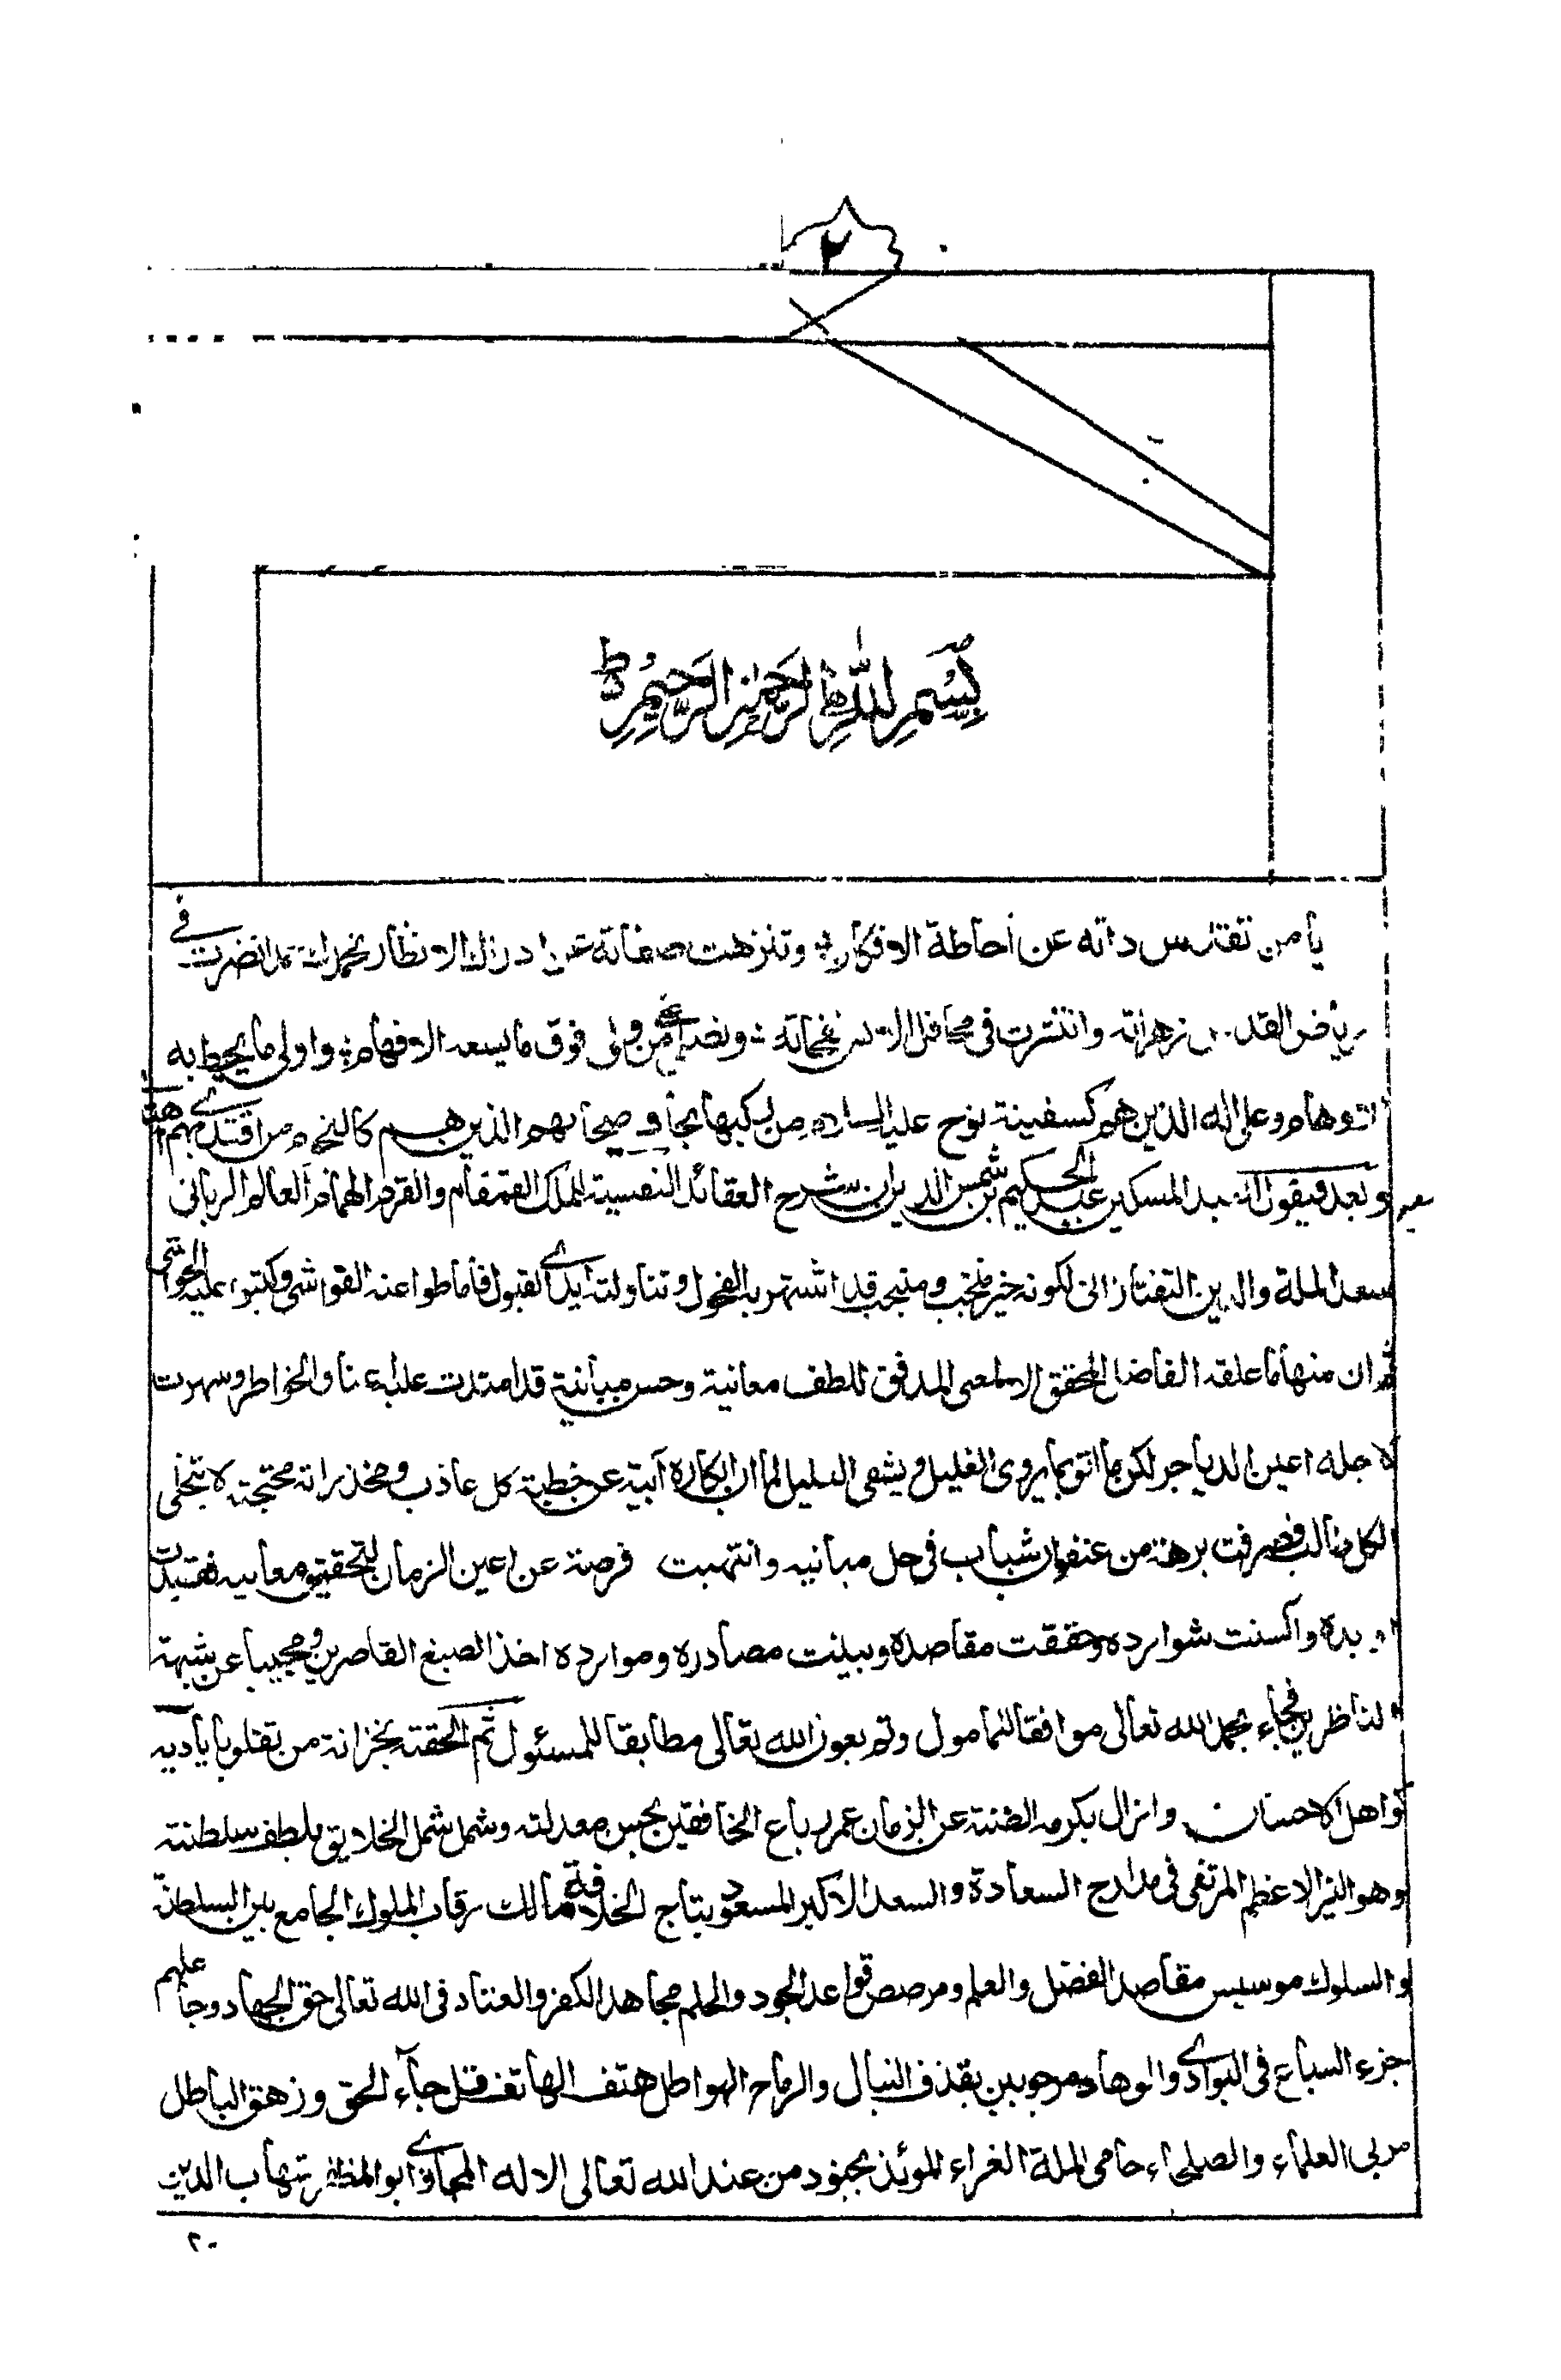 ٢
بِسْمِ اللّٰهِ الرَّحْمٰنِ الرَّحِيْمِ ط
يا من تقدس ذاته عن احاطة الافكار وتنزهت صفاته عن ادراك الانظار نحمدك انضرت في
رياض القدس زهراته وانتشرت في محافل الانس نفحاته ونصلى على من وفى فوق ما يسعه الافهام واولى ما يحيط به
الاوهام وعلى اله الذين هم كسفينة نوح عليه السلام من ركبها نجا وصحابهم الذين هم كالنجوم من اقتدى بهم اهتدى
وبعد فيقول العبد المسكين عبد الحكيم بن شمس الدين ان شرح العقائد النفسية للملك القمقام والقرم الهمام العالم الربانى
سعد الملة والدين التفتازانى لكونه خير منتخب ومنتجب قد اشتهر به الفحول وتناولته ايدى القبول فاماطوا عنه الغواشى وكتبوا عليه الحواشى
ثم ان منها ما علقه الفاضل المحقق الالمعى المدقق للطف معانية وحسن مبانية قد امتدت عليه اعناق الخواطر وسهرت
لاجله اعين الدياجر لكن ما اتو بما يروى الغليل ويشفى العليل لما ان ابكاره آبية عن خطبة كل عاذب ومخدراته محتجبة لا تتجلى
لكل طالب فصرفت برهة من عنفوان شباب فى حل مبانيه وانتهبت فرصة عن اعين الزمان لتحقيق معانيه فقيدت
اوابده وآنست شوارده وحققت مقاصده وبينت مصادره وموارده اخذا لصبغ القاصرين ومجيبا عن شبهة
الناظرين فجاء بحمد الله تعالى موافقا للمامول وتم بعون الله تعالى مطابقا للمسئول ثم الحقته بخزانة من تقلو باياديه
كواهل الاحسان وازال بكرمه الضنة عن الزمان عمر رباع الخافقين بحسن معدلته وشمل شمل الخلايق بلطف سلطنته
وهو النير الاعظم المرتقى فى مدارج السعادة والسعد الاكبر المسعود بتاج الخلافة مالك رقاب الملوك الجامع بين السلطنة
والسلوك موسس مقاصد الفضل والعلم ومرصص قواعد الجود والحلم مجاهد الكفر والعناد فى الله تعالى حق الجهاد وجاعلهم
جزء السباع فى البوادى والوهاد مرجوبين بقذف النبال والرماح الهواطل هتف الهاتف قل جآء الحق وزهق الباطل
مربى العلماء والصلحاء حامى الملة الغراء المؤيد بجنود من عند الله تعالى الاله المجازى ابو المظفر شهاب الدين
٢٠